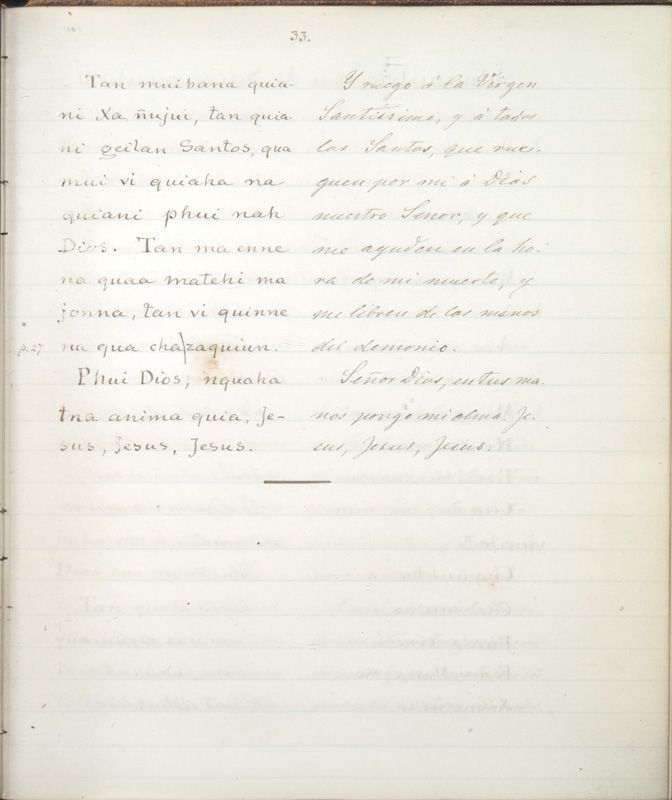 33.
Tan muibana quia-
ni Xa ñujui, tan quia
ni geitan Santos, qua
mui vi quiaha na
quiani phui nah
Dios. Tan ma enne
na quaa matehi ma
jonna, tan vi quinne
nu qua cha/zaquiun.
Phui Dios, nquaha
tna anima quia, Je-
sus, Jesus, Jesus.
p.27
Y ruego á la Virgen
Santissima, y á todos
los Santos, que rue-
guen por mi á Dios
nuestro Senor, y que
me ayuden en la ho-
ra de mi muerte, y
me libren de las manos
del demonio.
Señor Dios, en tus ma-
nos pongo mi alma. Je-
sus, Jesus, Jesus.